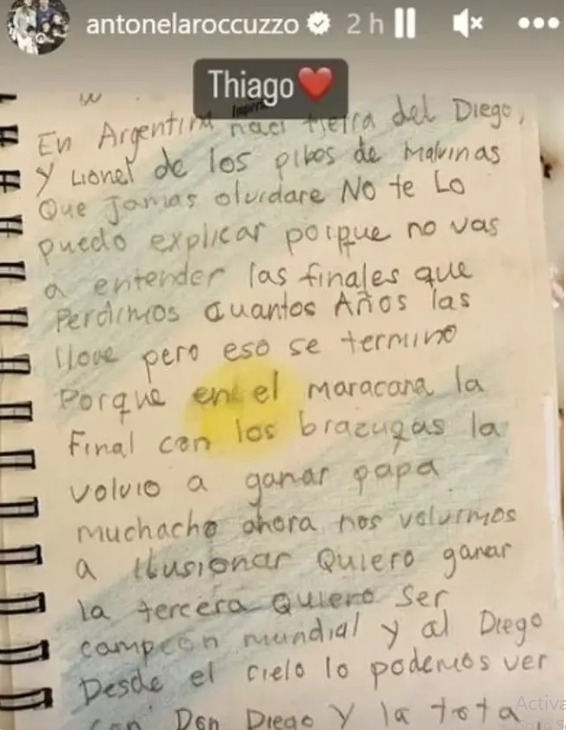 antonelaroccuzzo 2 h
Thiago
En Argentina naci tierra del Diego,
y Lionel de los pibes de Malvinas
Que Jamas olvidare NO te Lo
puedo explicar porque no vas
a entender las finales que
Perdimos cuantos Años las
llore pero eso se termino
Porque en el maracana la
Final con los brazucas la
volvio a ganar papa
muchacho ahora nos volvimos
a ilusionar Quiero ganar
la tercera Quiero Ser
campeon mundial y al Diego
Desde el cielo lo podemos ver
con Don Diego Y la tota
Activa